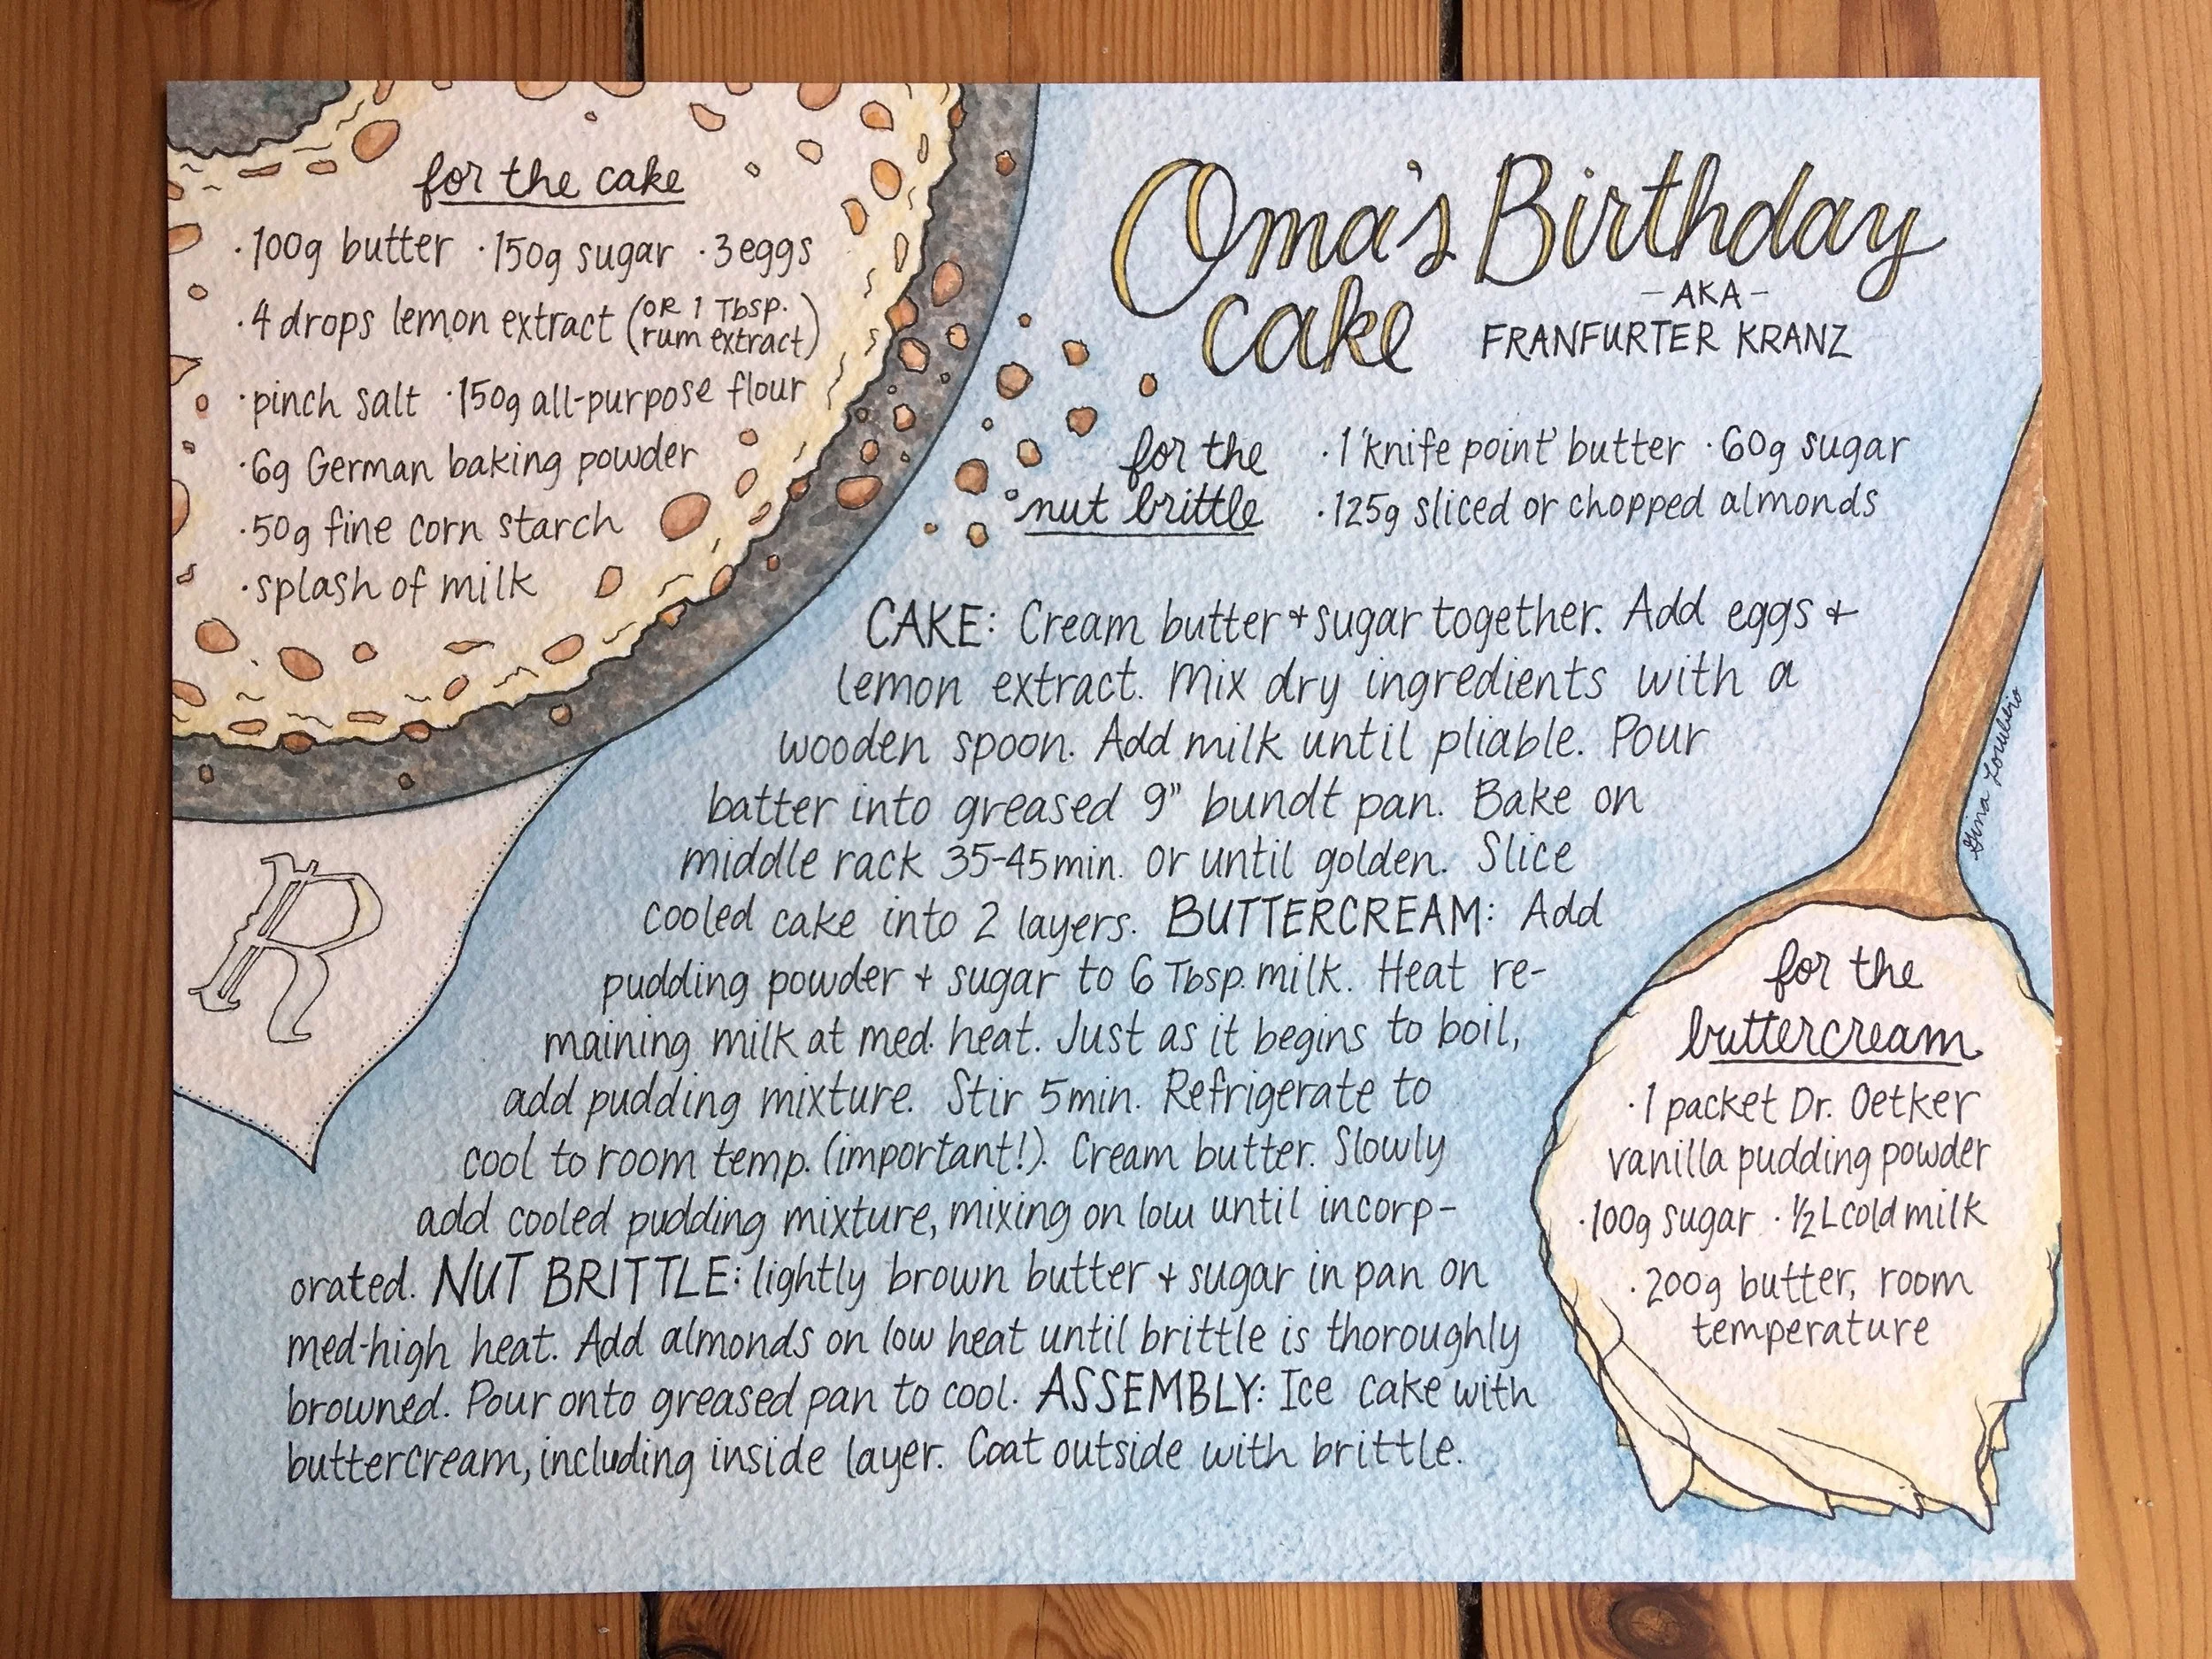 for the cake
·100g butter ·150g sugar ·3 eggs
·4 drops lemon extract (OR 1 Tbsp. rum extract)
·pinch salt ·150g all-purpose flour
·6g German baking powder
·50g fine corn starch
·splash of milk
Oma's Birthday
cake
-AKA-
FRANFURTER KRANZ
for the
nut brittle
·1 'knife point' butter ·60g sugar
·125g sliced or chopped almonds
CAKE: Cream butter + sugar together. Add eggs +
lemon extract. Mix dry ingredients with a
wooden spoon. Add milk until pliable. Pour
batter into greased 9" bundt pan. Bake on
middle rack 35-45min. or until golden. Slice
cooled cake into 2 layers. BUTTERCREAM: Add
pudding powder + sugar to 6 Tbsp. milk. Heat re-
maining milk at med. heat. Just as it begins to boil,
add pudding mixture. Stir 5min. Refrigerate to
cool to room temp. (important!). Cream butter. Slowly
add cooled pudding mixture, mixing on low until incorp-
orated. NUT BRITTLE: lightly brown butter + sugar in pan on
med-high heat. Add almonds on low heat until brittle is thoroughly
browned. Pour onto greased pan to cool. ASSEMBLY: Ice cake with
buttercream, including inside layer. Coat outside with brittle.
R
for the
buttercream
·1 packet Dr. Oetker
vanilla pudding powder
·100g sugar ·½ L cold milk
·200g butter, room
temperature
Gina Lorubbio